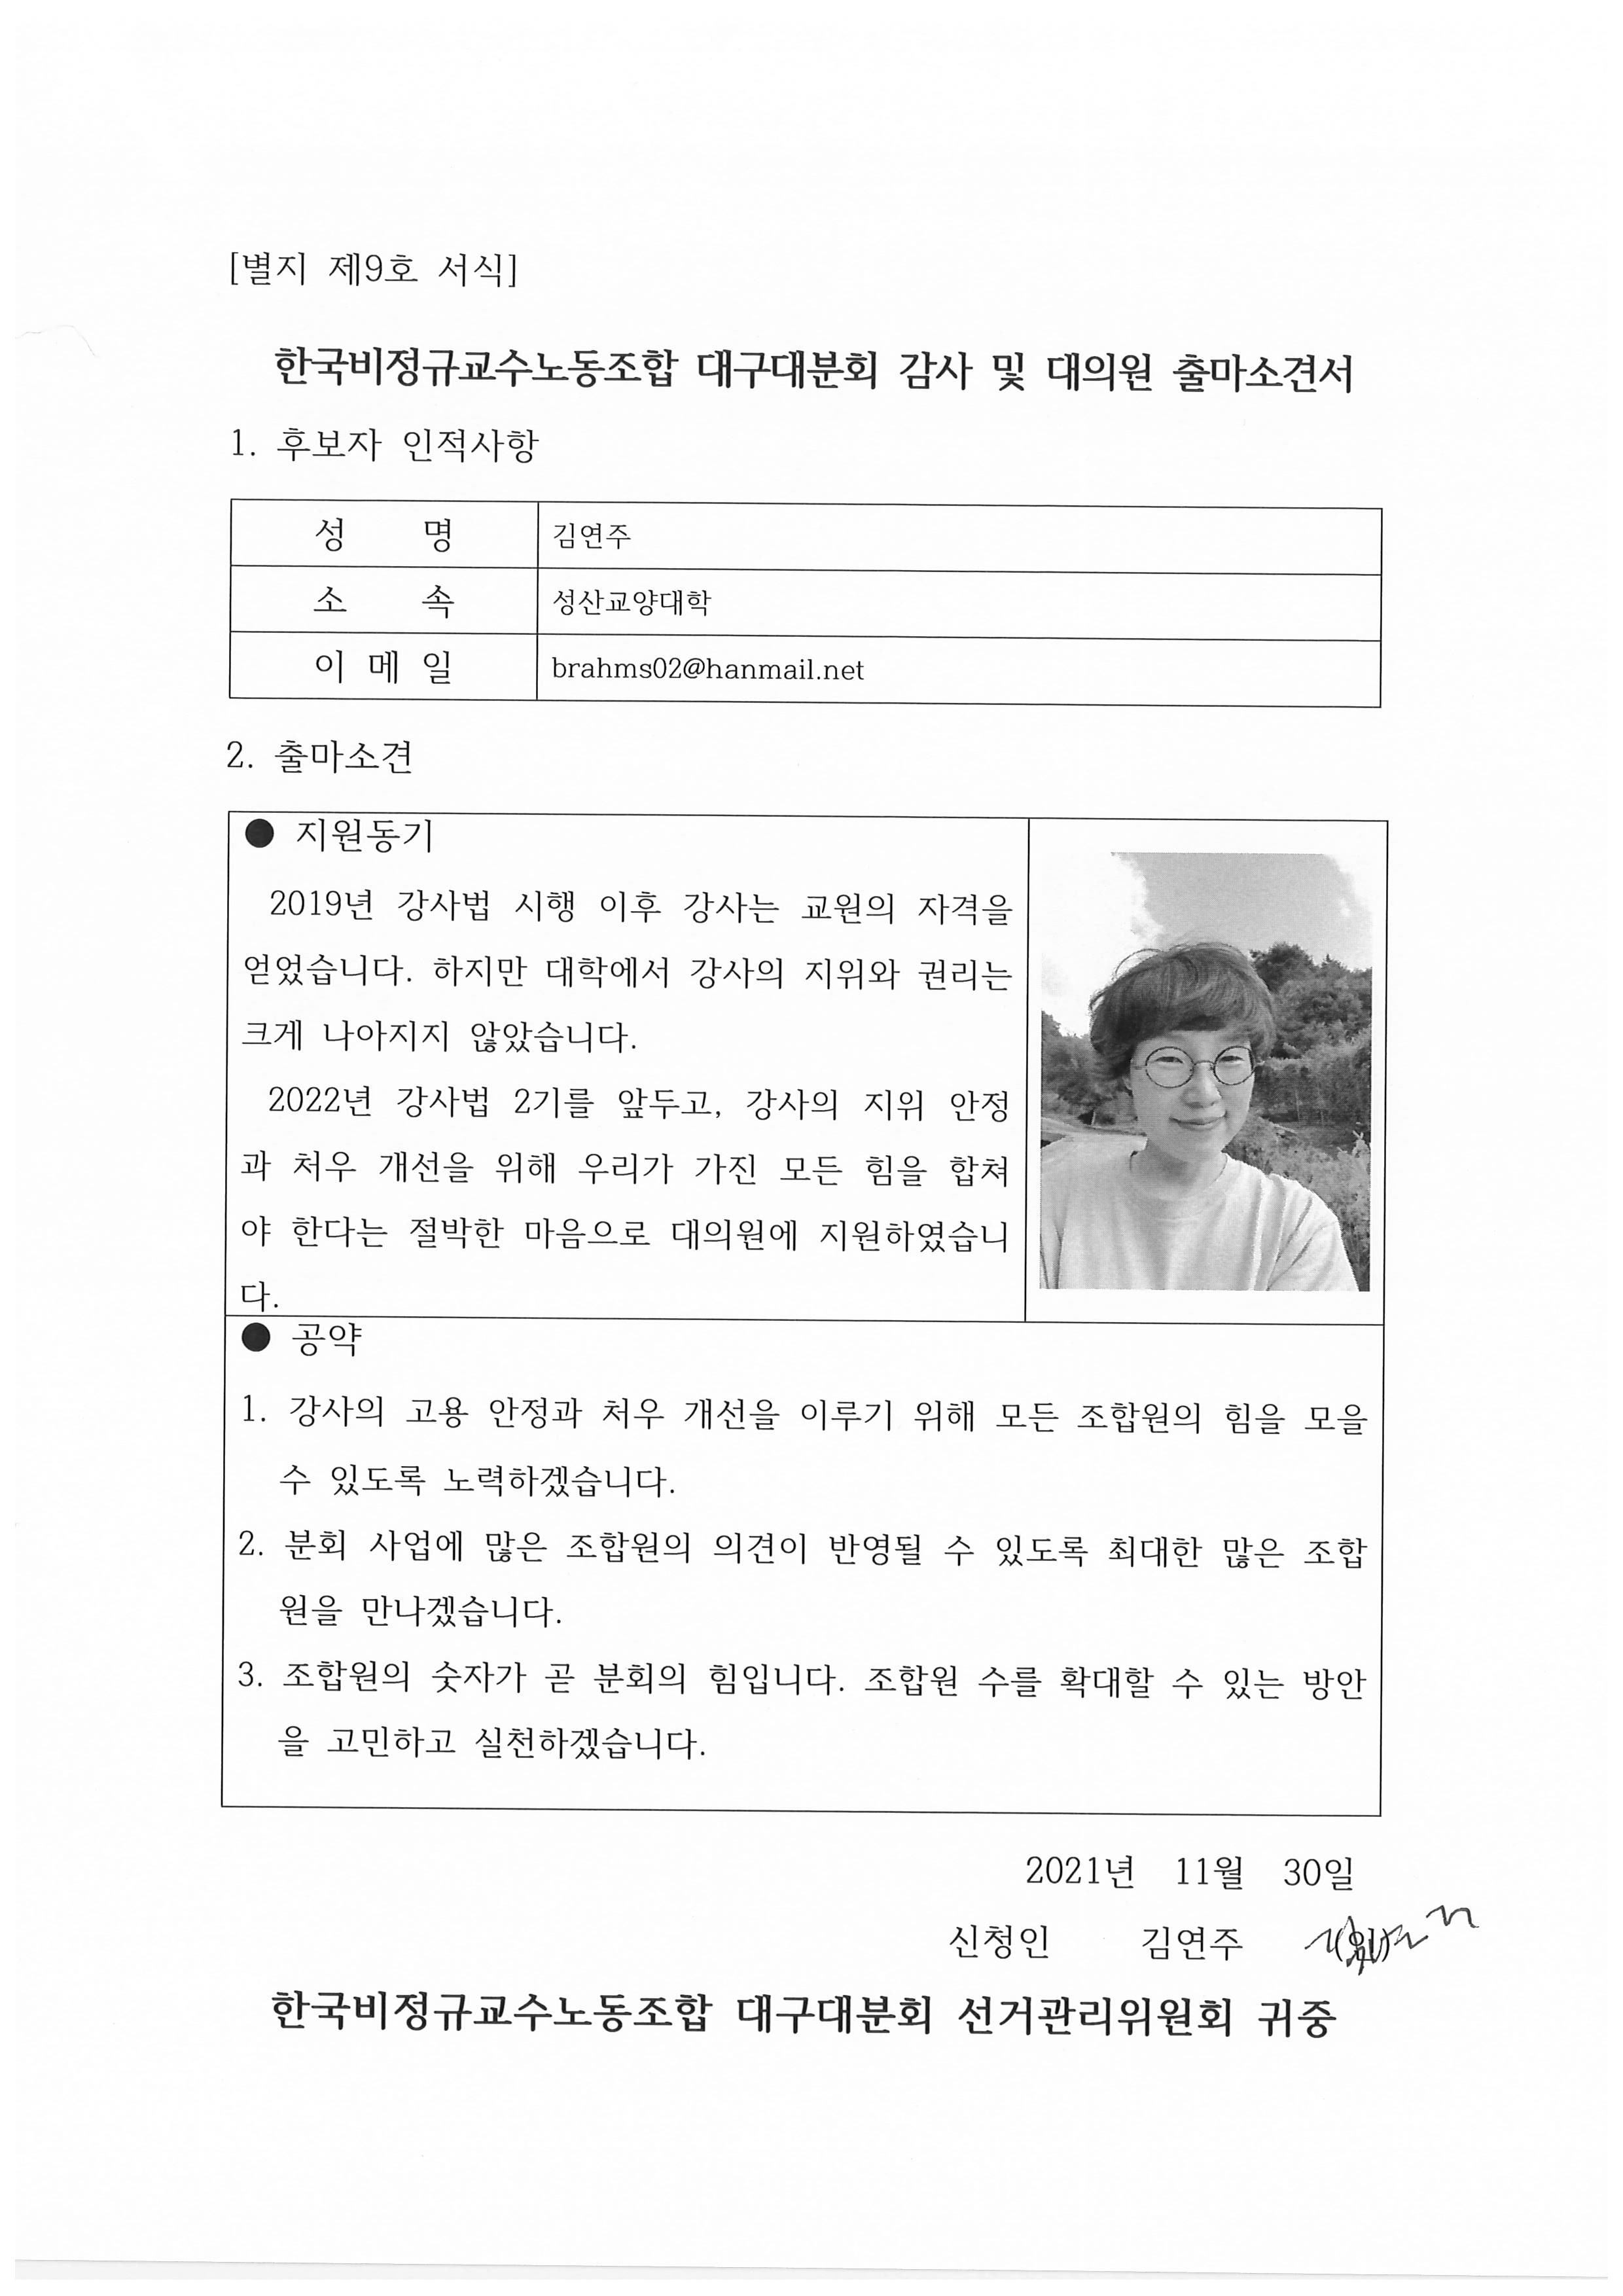 [별지 제9호 서식]
한국비정규교수노동조합 대구대분회 감사 및 대의원 출마소견서
1. 후보자 인적사항
성 명 김연주
소 속 성산교양대학
이 메 일 brahms02@hanmail.net
2. 출마소견
● 지원동기
2019년 강사법 시행 이후 강사는 교원의 자격을
얻었습니다. 하지만 대학에서 강사의 지위와 권리는
크게 나아지지 않았습니다.
2022년 강사법 2기를 앞두고, 강사의 지위 안정
과 처우 개선을 위해 우리가 가진 모든 힘을 합쳐
야 한다는 절박한 마음으로 대의원에 지원하였습니
다.
● 공약
1. 강사의 고용 안정과 처우 개선을 이루기 위해 모든 조합원의 힘을 모을
수 있도록 노력하겠습니다.
2. 분회 사업에 많은 조합원의 의견이 반영될 수 있도록 최대한 많은 조합
원을 만나겠습니다.
3. 조합원의 숫자가 곧 분회의 힘입니다. 조합원 수를 확대할 수 있는 방안
을 고민하고 실천하겠습니다.
2021년 11월 30일
신청인 김연주 (인)
한국비정규교수노동조합 대구대분회 선거관리위원회 귀중